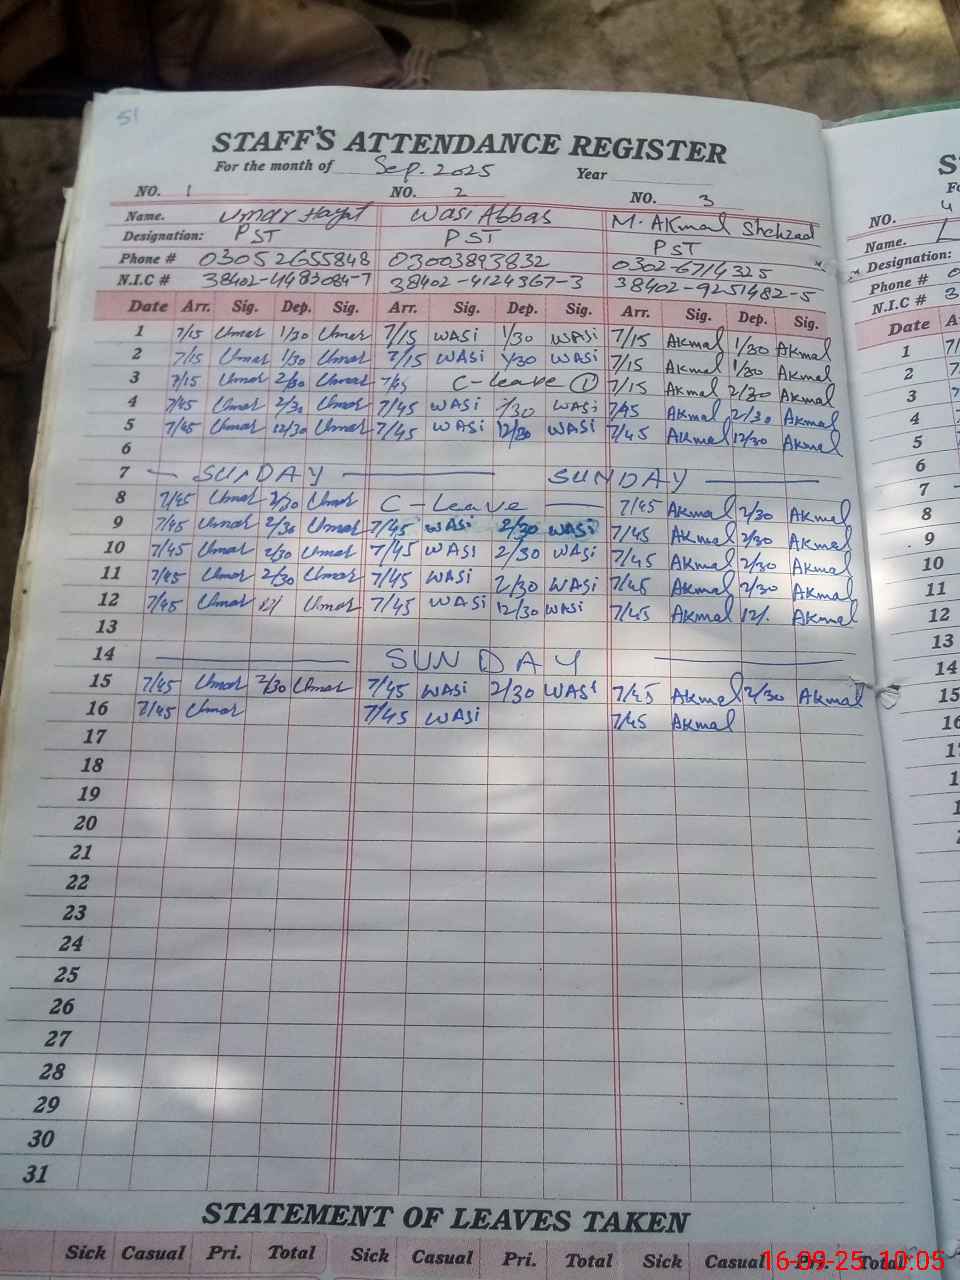 51
STAFF'S ATTENDANCE REGISTER
For the month of Sep. 2025 Year
NO. 1 NO. 2 NO. 3
Name. Umar Hayat Wasi Abbas M. Akmal Shehzad
Designation: PST PST PST
Phone # 03052655848 03003893832 0302-6714325
N.I.C # 38402-4483084-7 38402-4124367-3 38402-9251482-5
Date Arr. Sig. Dep. Sig. Arr. Sig. Dep. Sig. Arr. Sig. Dep. Sig.
1 7/15 Umar 1/30 Umar 7/15 WASi 1/30 WASi 7/15 Akmal 1/30 Akmal
2 7/15 Umar 1/30 Umar 7/15 WASi 1/30 WASi 7/15 Akmal 1/30 Akmal
3 7/15 Umar 2/30 Umar 7/45 C-leave 1 7/15 Akmal 2/30 Akmal
4 7/45 Umar 2/30 Umar 7/45 WASi 2/30 WASi 7/45 Akmal 2/30 Akmal
5 7/45 Umar 12/30 Umar 7/45 WASi 12/30 WASi 7/45 Akmal 12/30 Akmal
6
7 SUNDAY SUNDAY
8 7/45 Umar 2/30 Umar C-Leave 7/45 Akmal 2/30 Akmal
9 7/45 Umar 2/30 Umar 7/45 WASi 2/30 WASi 7/45 Akmal 2/30 Akmal
10 7/45 Umar 2/30 Umar 7/45 WASi 2/30 WASi 7/45 Akmal 2/30 Akmal
11 7/45 Umar 2/30 Umar 7/45 WASi 2/30 WASi 7/45 Akmal 2/30 Akmal
12 7/45 Umar 12/ Umar 7/45 WASi 12/30 WASi 7/45 Akmal 12/. Akmal
13
14 SUNDAY
15 7/45 Umar 2/30 Umar 7/45 WASi 2/30 WASi 7/45 Akmal 2/30 Akmal
16 7/45 Umar 7/45 WASi 7/45 Akmal
17
18
19
20
21
22
23
24
25
26
27
28
29
30
31
STATEMENT OF LEAVES TAKEN
Sick Casual Pri. Total Sick Casual Pri. Total Sick Casual Pri. Total
16-09-25 10:05
NO. 4
Name.
Designation:
Phone # 0
N.I.C # 3
Date
1
2
3
4
5
6
7
8
9
10
11
12
13
14
15
16